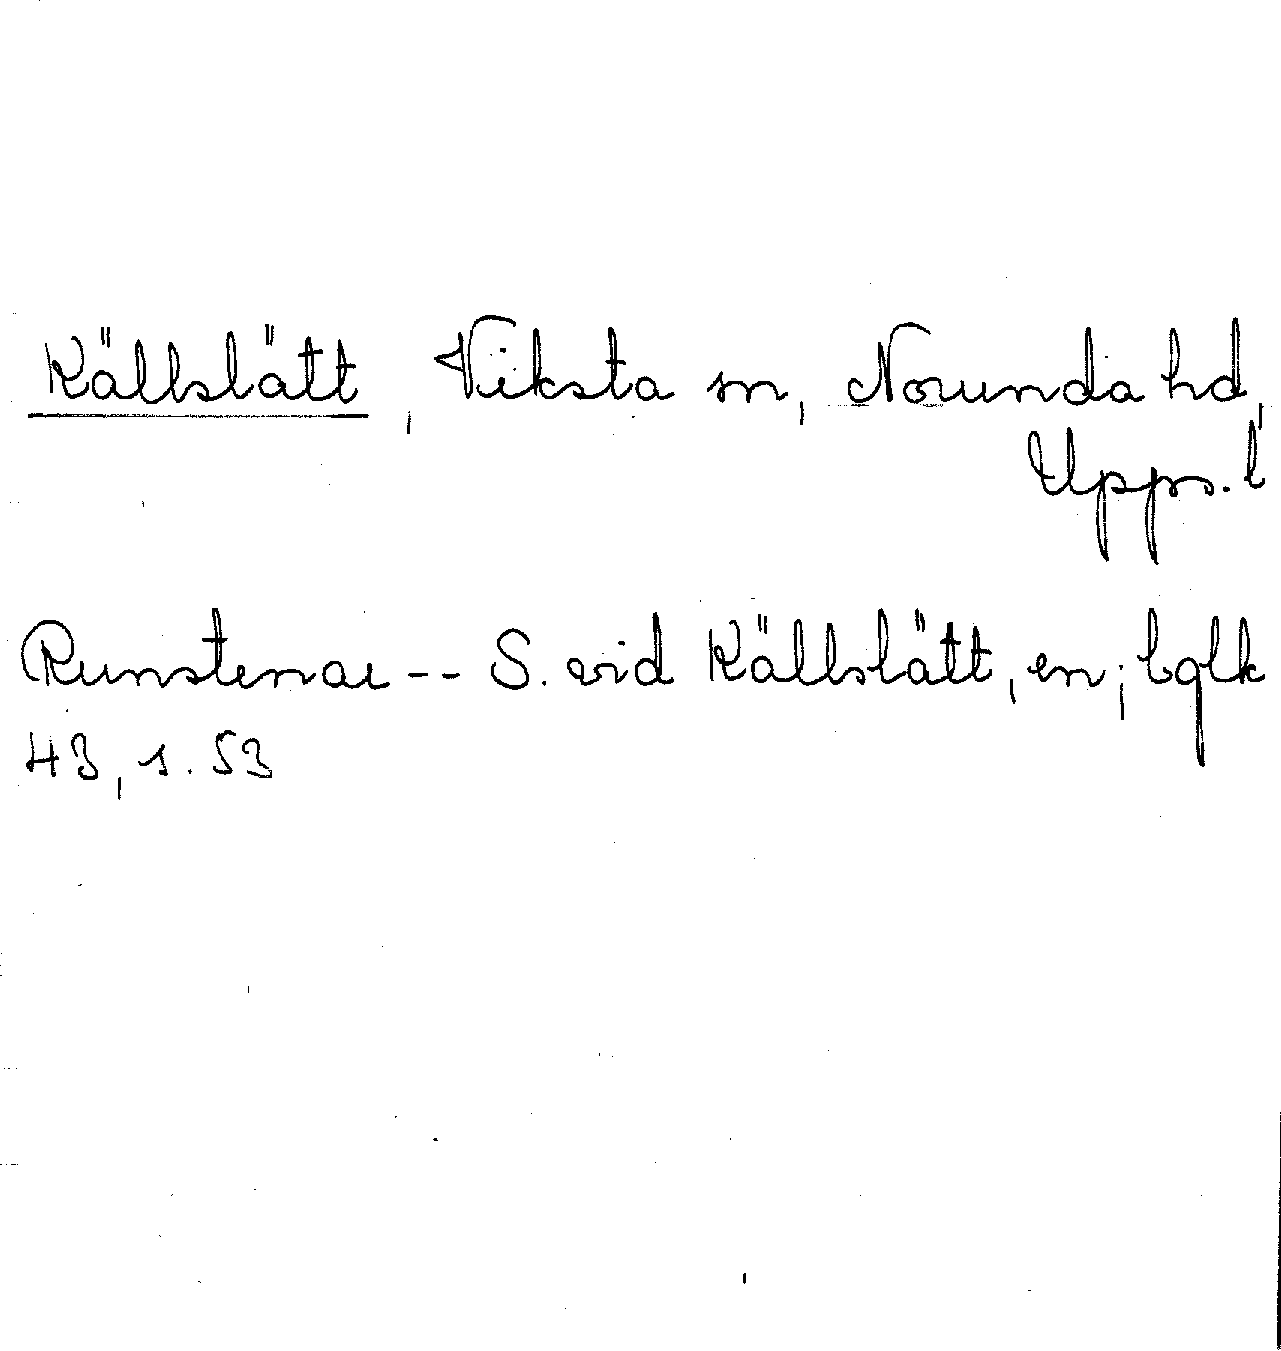 Källslätt, Viksta sn, Norunda hd,
Upps. l
Runstenar -- S. vid Källslätt, en; bglk
43, s. 53